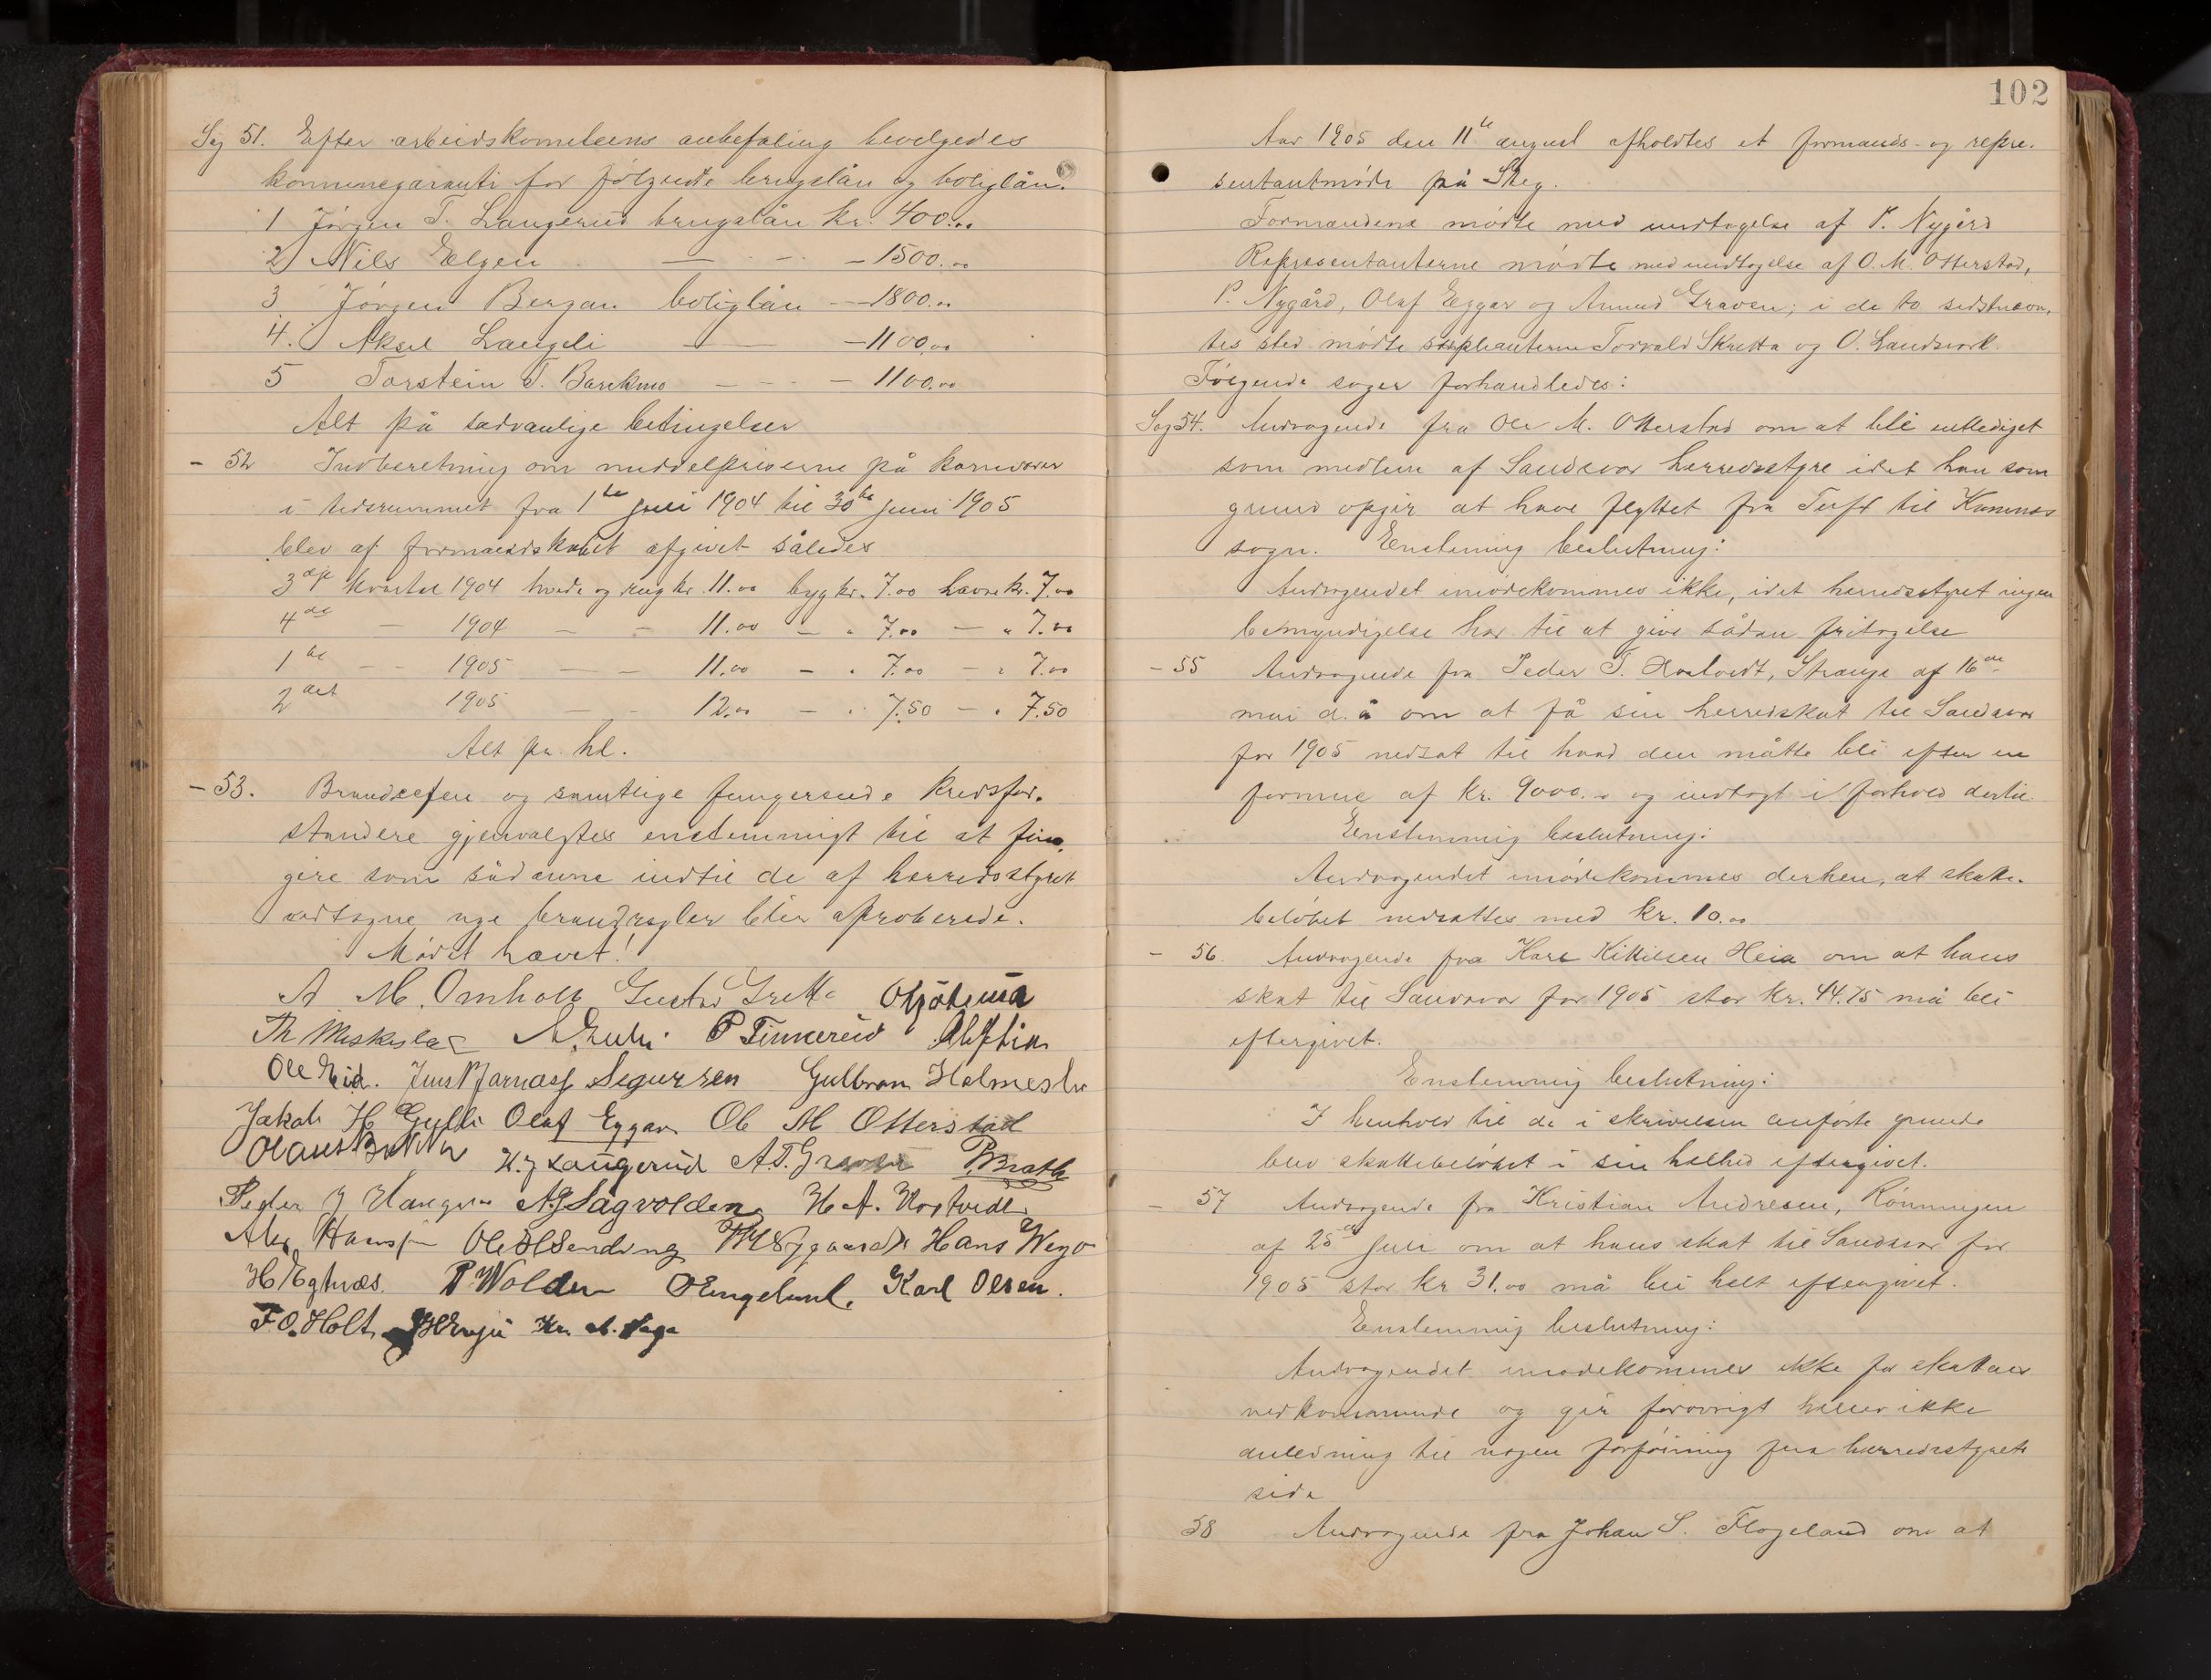 Sag 51. Efter arbeidskomiteens anbefaling bevilgedes
kommunegaranti for følgende brugslån og boliglån.
1 Jørgen T. Langerud brugslån kr. 400.00
2) Nils Elgen — - - — 1500.00
3 Jørgen Bergan boliglån — 1800.00
4. Aksel Langeli — — — 1100.00
5 Torstein T. Barekmo — - - — 1100.00
Alt på sædvanlige betingelser
- 52 Indberetning om middelpriserne på kornvarer
i tidsrummet fra 1te juli 1904 til 30te juni 1905
blev af formandskabet afgivet således
3dje kvartal 1904 hvede og rug kr. 11.00 byg kr. 7.00 havre kr. 7.00
4de — 1904 — - 11.00 — " 7.00 — " 7.00
1te — - 1905 — - 11.00 — " 7.00 — " 7.00
2det 1905 — - 12.00 — " 7.50 — " 7.50
Alt pr. hl.
- 53. Brandchefen og samtlige fungerende kredsfor-
standere gjenvalgtes enstemmigt til at fun-
gere som sådanne indtil de af herredsstyret
vedtagne nye brandregler blir aproberede.
Mødet hævet!
A M. Omholt Gustav Grette
Th Meskestad P Tinnerud
Ole Eid. Jens Bjarnæs Segursen Gulbran Holmestu
Jakob H Gulli Olaf Eggar Ole M Otterstad
H. J Langerud A. T. Graven P. Bratli
Peder J Haugen A. J. Sagvolden H. A. Hostvedt
Alex Hansen Ole Ol Sending M Nygaard Hans Wego
H Egtnæs. P. Wolden O Engelund. Karl Olsen.
F. O. Holt Kr. A. Haga
102
Aar 1905 den 11te august afholdtes et formands- og repre-
sentantmøde på Steg.
Formændene mødte med undtagelse af P. Nygård
Representanterne mødte med undtagelse af O. M. Otterstad,
P. Nygård, Olaf Eggar og Amund Graven; i de to sidstnævn-
tes sted mødte suppleanterne Torvald Skretta og O. Landsverk.
Følgende sager forhandledes:
Sag 54. Andragende fra Ole M. Otterstad om at bli entlediget
som medlem af Sandsvær herredsstyre idet han som
grund opgir at have flyttet fra Tuft til Komnes
sogn. Enstemmig beslutning:
Andragendet imødekommes ikke, idet herredsstyret ingen
bemyndigelse har til at give sådan fritagelse
- 55 Andragende fra Peder T. Hostvedt, Strange af 16de
mai d. å om at få sin herredskat til Sandsvær
for 1905 nedsat til hvad den måtte bli efter en
formue af kr. 9000.00 og indtægt i forhold dertil.
Enstemmig beslutning:
Andragendet imødekommes derhen, at skatte-
beløbet nedsættes med kr. 10.00
- 56. Andragende fra Hans Kittilsen Heia om at hans
skat til Sandsvær for 1905 stor kr. 44.75 må bli
eftergivet.
Enstemmig beslutning:
I henhold til de i skrivelsen anførte grunde
blev skattebeløbet i sin helhed eftergivet.
- 57 Andragende fra Kristian Andresen, Rønningen
af 25de juli om at hans skat til Sandsvær for
1905 stor kr 31.00 må bli helt eftergivet.
Enstemmig beslutning:
Andragendet imødekommes ikke for skattens
vedkommende og gir forøvrigt heller ikke
anledning til nogen forføining fra herredsstyrets
side
58 Andragende fra Johan S. Flogeland om at